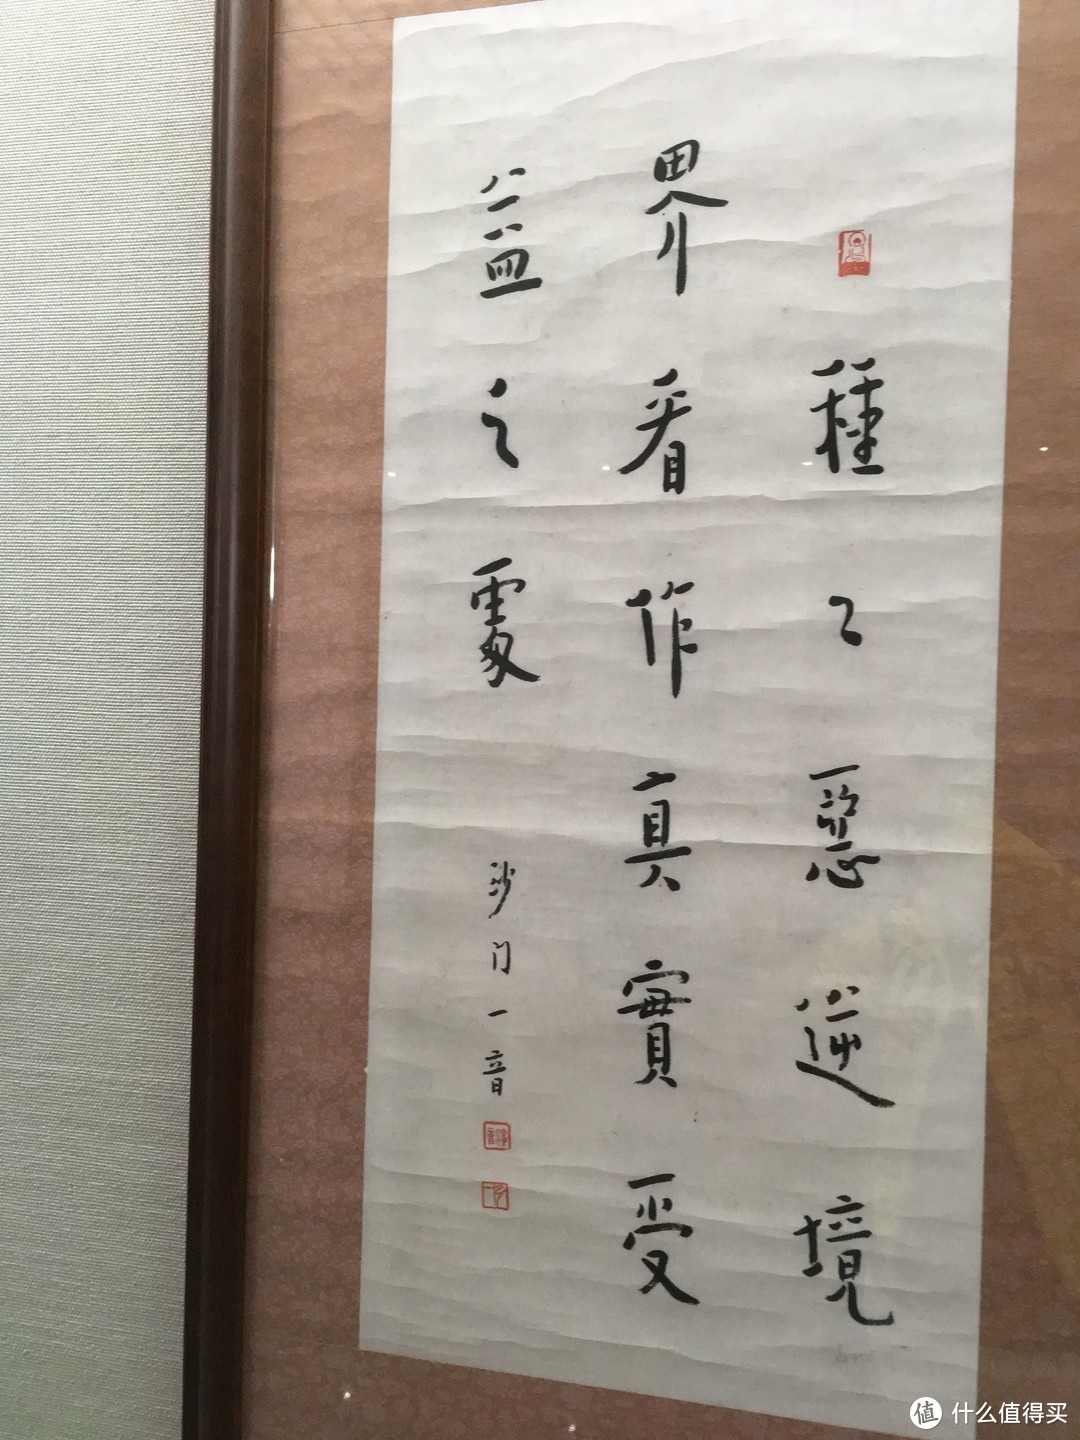 種々惡逆境
界看作真實受
益之處
沙门一音
值 什么值得买